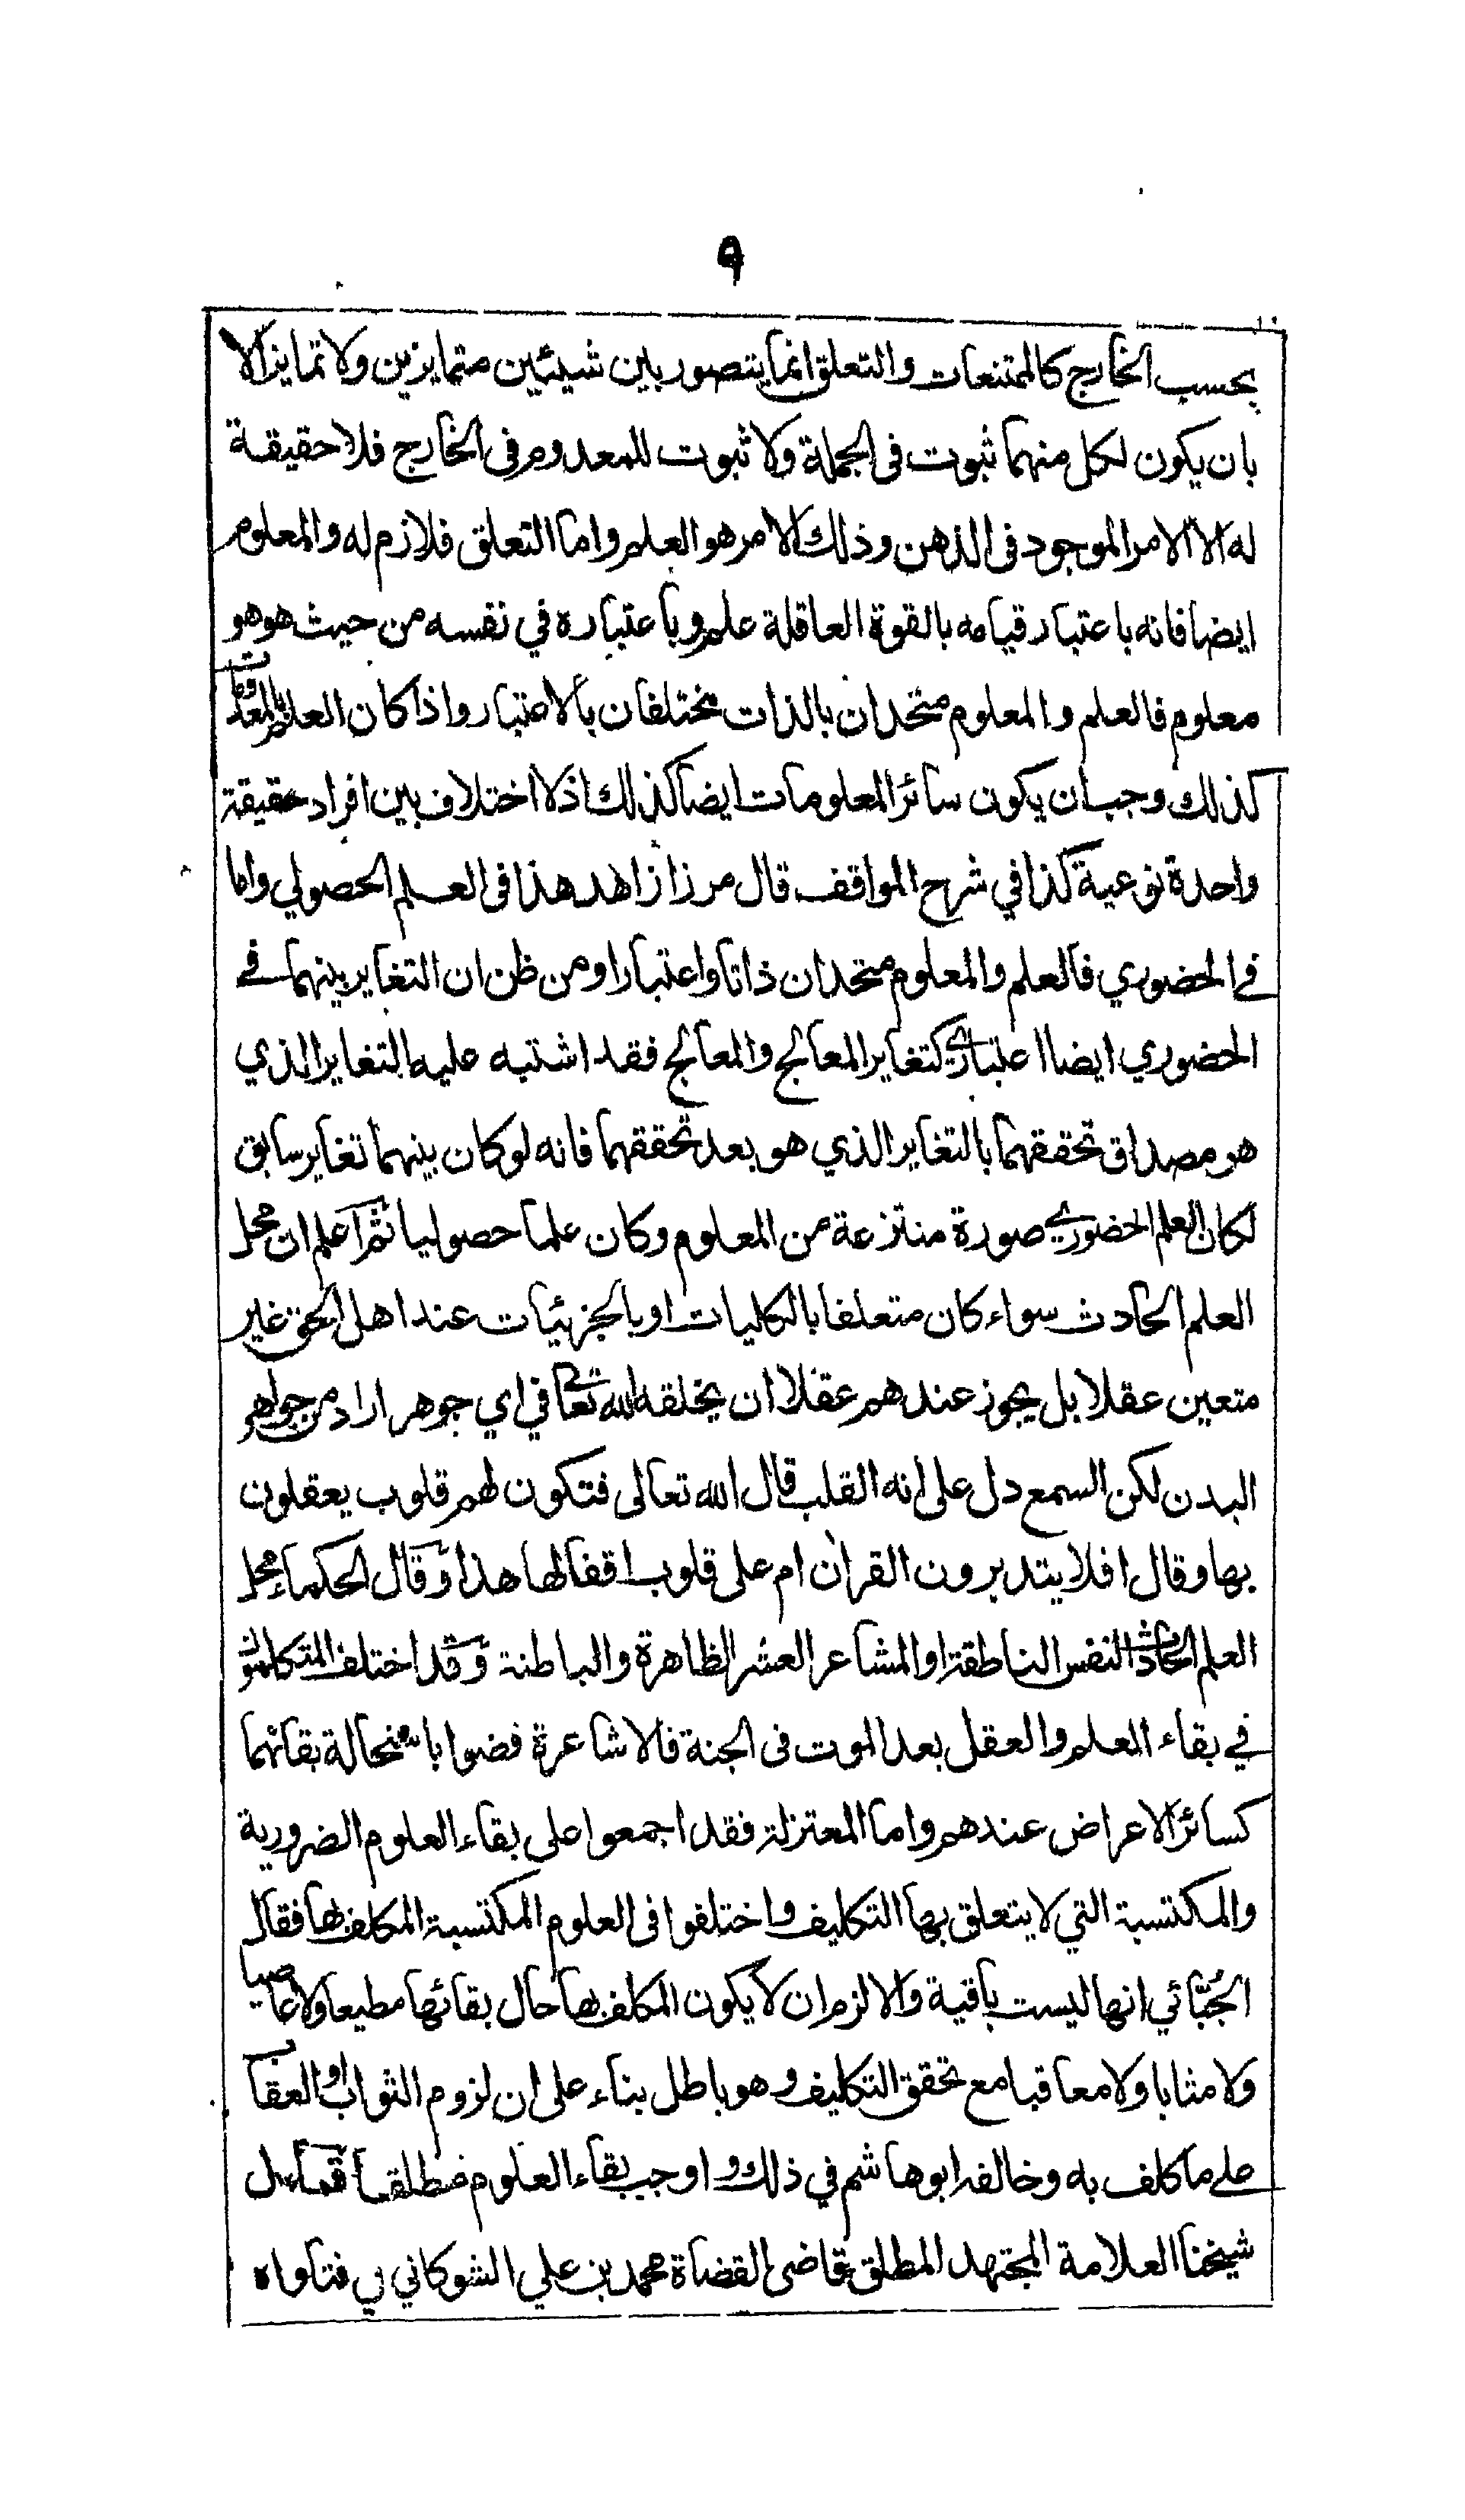 ٩
بحسب الخارج كالممتنعات والتعلق انما يتصور بين شيئين متمايزين ولا تمايز الا
بان يكون لكل منهما ثبوت فى الجملة ولا ثبوت للمعدوم فى الخارج فلا حقيقة
له الا الامر الموجود فى الذهن وذلك الامر هو العلم واما التعلق فلازم له والمعلوم
ايضا فانه باعتبار قيامه بالقوة العاقلة علم وباعتباره في نفسه من حيث هو هو
معلوم فالعلم والمعلوم متحدان بالذات مختلفان بالاعتبار واذا كان العلم بالمعدومات
كذلك وجب ان يكون سائر المعلومات ايضا كذلك اذ لا اختلاف بين افراد حقيقة
واحدة نوعية كذا في شرح المواقف قال مرزا زاهد هذا فى العلم الحصولي واما
في الحضوري فالعلم والمعلوم متحدان ذاتا واعتبارا ومن ظن ان التغاير بينهما في
الحضوري ايضا اعتباري كتغاير المعالج والمعالج فقد اشتبه عليه التغاير الذي
هو مصداق تحققهما بالتغاير الذي هو بعد تحققهما فانه لو كان بينهما تغاير سابق
لكان العلم الحضوري صورة منتزعة من المعلوم وكان علما حصوليا ثم اعلم ان محل
العلم الحادث سواء كان متعلقا بالكليات او بالجزئيات عند اهل الحق غير
متعين عقلا بل يجوز عندهم عقلا ان يخلقه الله تعالى في اي جوهر اراد من جواهر
البدن لكن السمع دل على انه القلب قال الله تعالى فتكون لهم قلوب يعقلون
بها وقال افلا يتدبرون القران ام على قلوب اقفالها هذا وقال الحكماء محل
العلم الحادث النفس الناطقة او المشاعر العشر الظاهرة والباطنة وقد اختلف المتكلمون
في بقاء العلم والعقل بعد الموت فى الجنة فالاشاعرة قضوا باستحالة بقائهما
كسائر الاعراض عندهم واما المعتزلة فقد اجمعوا على بقاء العلوم الضرورية
والمكتسبة التي لا يتعلق بها التكليف واختلفوا فى العلوم المكتسبة المكلف بها فقال
الجُبّائي انها ليست باقية والا لزم ان لا يكون المكلف بها حال بقائها مطيعا ولا عاصيا
ولا مثابا ولا معاقبا مع تحقق التكليف وهو باطل بناء على ان لزوم الثواب او العقاب
على ما كلف به وخالفه ابو هاشم في ذلك واوجب بقاء العلوم مطلقا قال
شيخنا العلامة المجتهد المطلق قاضى القضاة محمد بن علي الشوكاني في فتاواه